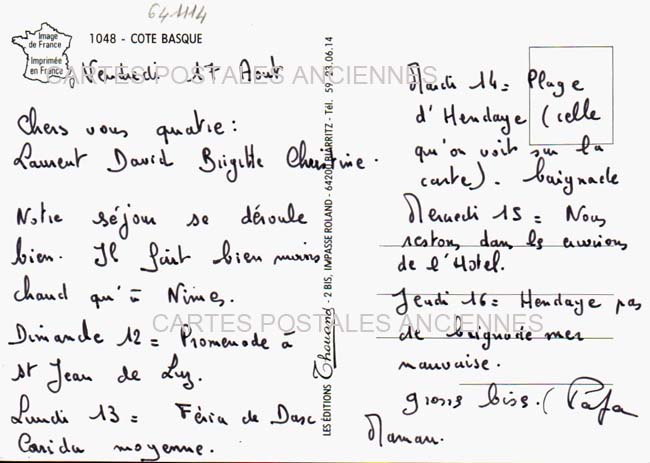 641114
Image
de France
Imprimée
en France
1048 - COTE BASQUE
CARTES POSTALES ANCIENNES
Vendredi 17 Aout
Chers vous quatre :
Laurent David Brigitte Christine.
Notre séjour se déroule
bien. Il fait bien moins
chaud qu'à Nimes.
Dimanche 12 = Promenade à
st Jean de Luz.
Lundi 13 = Féria de Dax
Corrida moyenne.
LES ÉDITIONS Thouand - 2 BIS, IMPASSE ROLAND - 64200 BIARRITZ - Tél. 59 23.06.14
Mardi 14 = Plage
d'Hendaye (celle
qu'on voit sur la
carte). baignade
Mercredi 15 = Nous
restons dans les environs
de l'Hotel.
Jeudi 16 = Hendaye pas
de baignade mer
mauvaise.
grosses bises. (Papa
Maman.
CARTES POSTALES ANCIENNES